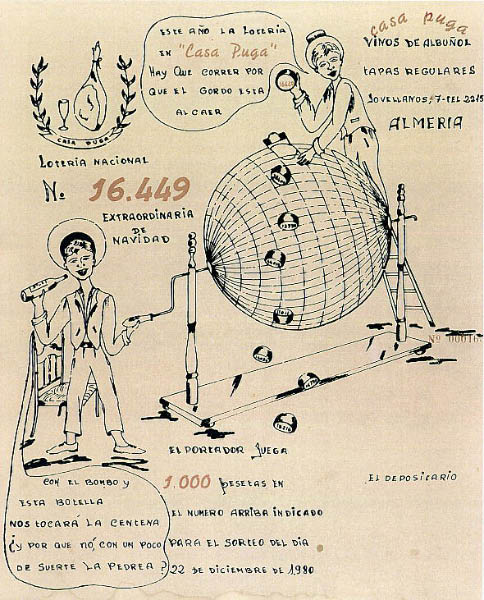 ESTE AÑO LA LOTERÍA
EN "Casa Puga"
HAY QUE CORRER POR
QUE EL GORDO ESTA
AL CAER
casa puga
VINOS DE ALBUÑOL
TAPAS REGULARES
JOVELLANOS, 7-TEL 2215
ALMERIA
CASA PUGA
LOTERÍA NACIONAL
No 16.449
EXTRAORDINARIA
DE
NAVIDAD
Nº 00016
EL PORTADOR JUEGA
1.000 PESETAS EN
EL NUMERO ARRIBA INDICADO
PARA EL SORTEO DEL DIA
22 DE DICIEMBRE DE 1980
EL DEPOSITARIO
CON EL BOMBO Y
ESTA BOTELLA
NOS TOCARÁ LA CENTENA
¿Y POR QUE NO, CON UN POCO
DE SUERTE LA PEDREA?